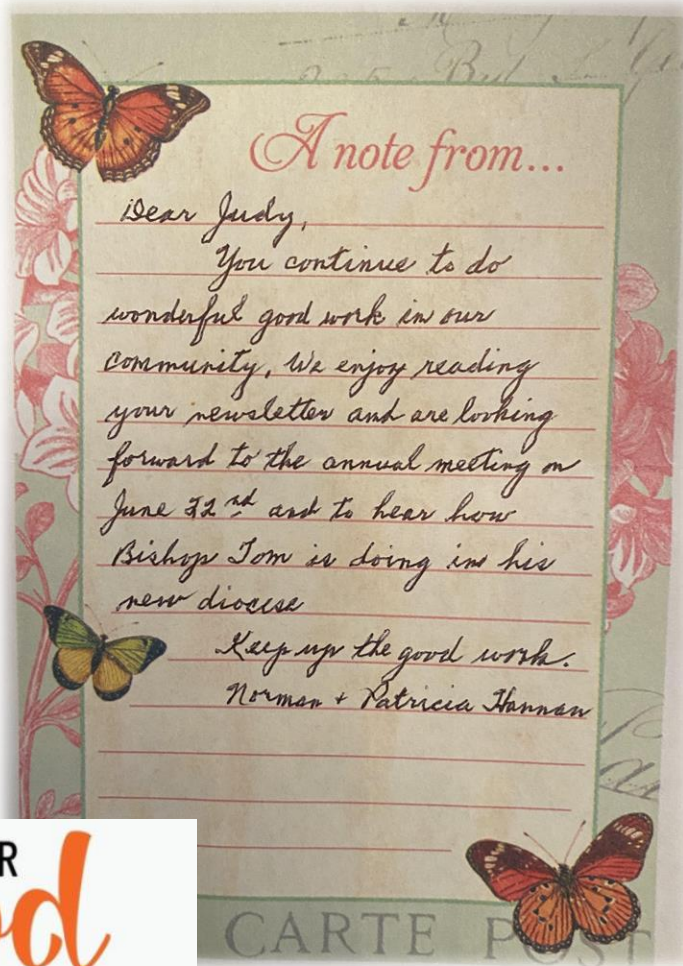 A note from...
Dear Judy,
You continue to do
wonderful good work in our
community, We enjoy reading
your newsletter and are looking
forward to the annual meeting on
June 22nd and to hear how
Bishop Tom is doing in his
new diocise
Keep up the good work.
Norman + Patricia Hannan
CARTE POST
R